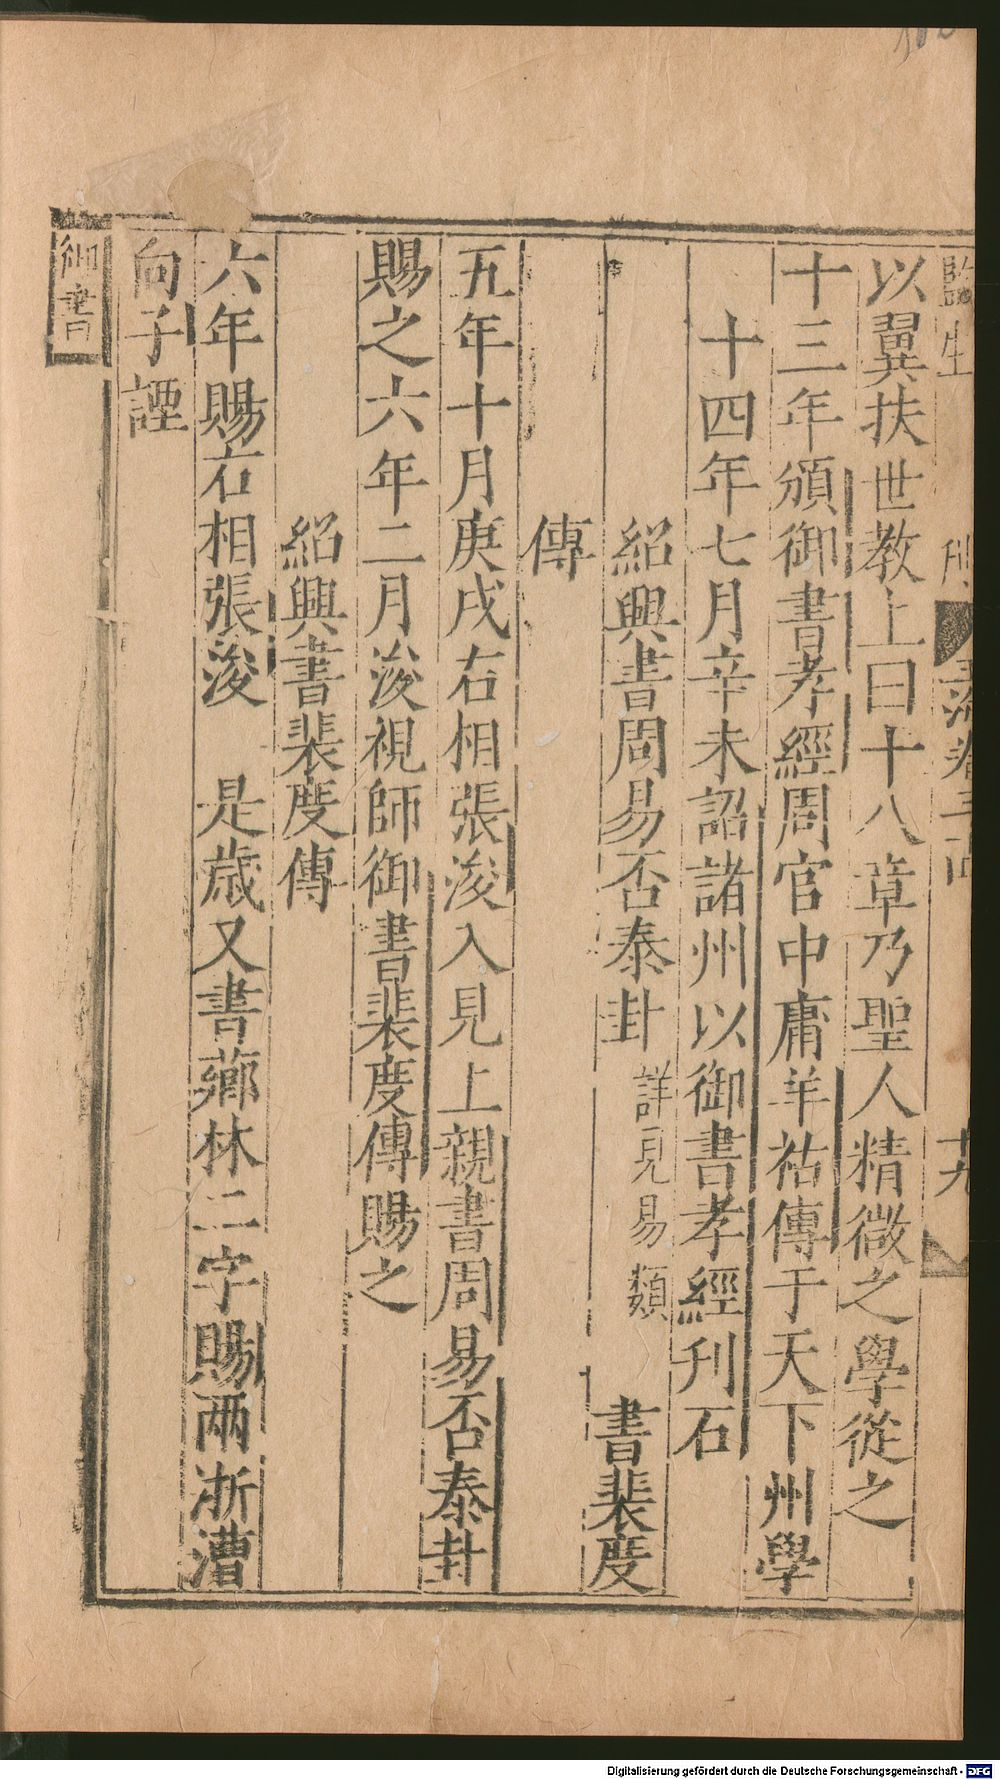 監生
玉海卷三十四
十九
以翼扶世教上曰十八章乃聖人精微之學從之
十三年頒御書孝經周官中庸羊祜傳于天下州學
十四年七月辛未詔諸州以御書孝經刊石
紹興書周易否泰卦詳見易類 書裴度
傳
五年十月庚戌右相張浚入見上親書周易否泰卦
賜之六年二月浚視師御書裴度傳賜之
紹興書裴度傳
六年賜右相張浚 是歲又書薌林二字賜兩浙漕
向子諲
御書
Digitalisierung gefördert durch die Deutsche Forschungsgemeinschaft - DFG